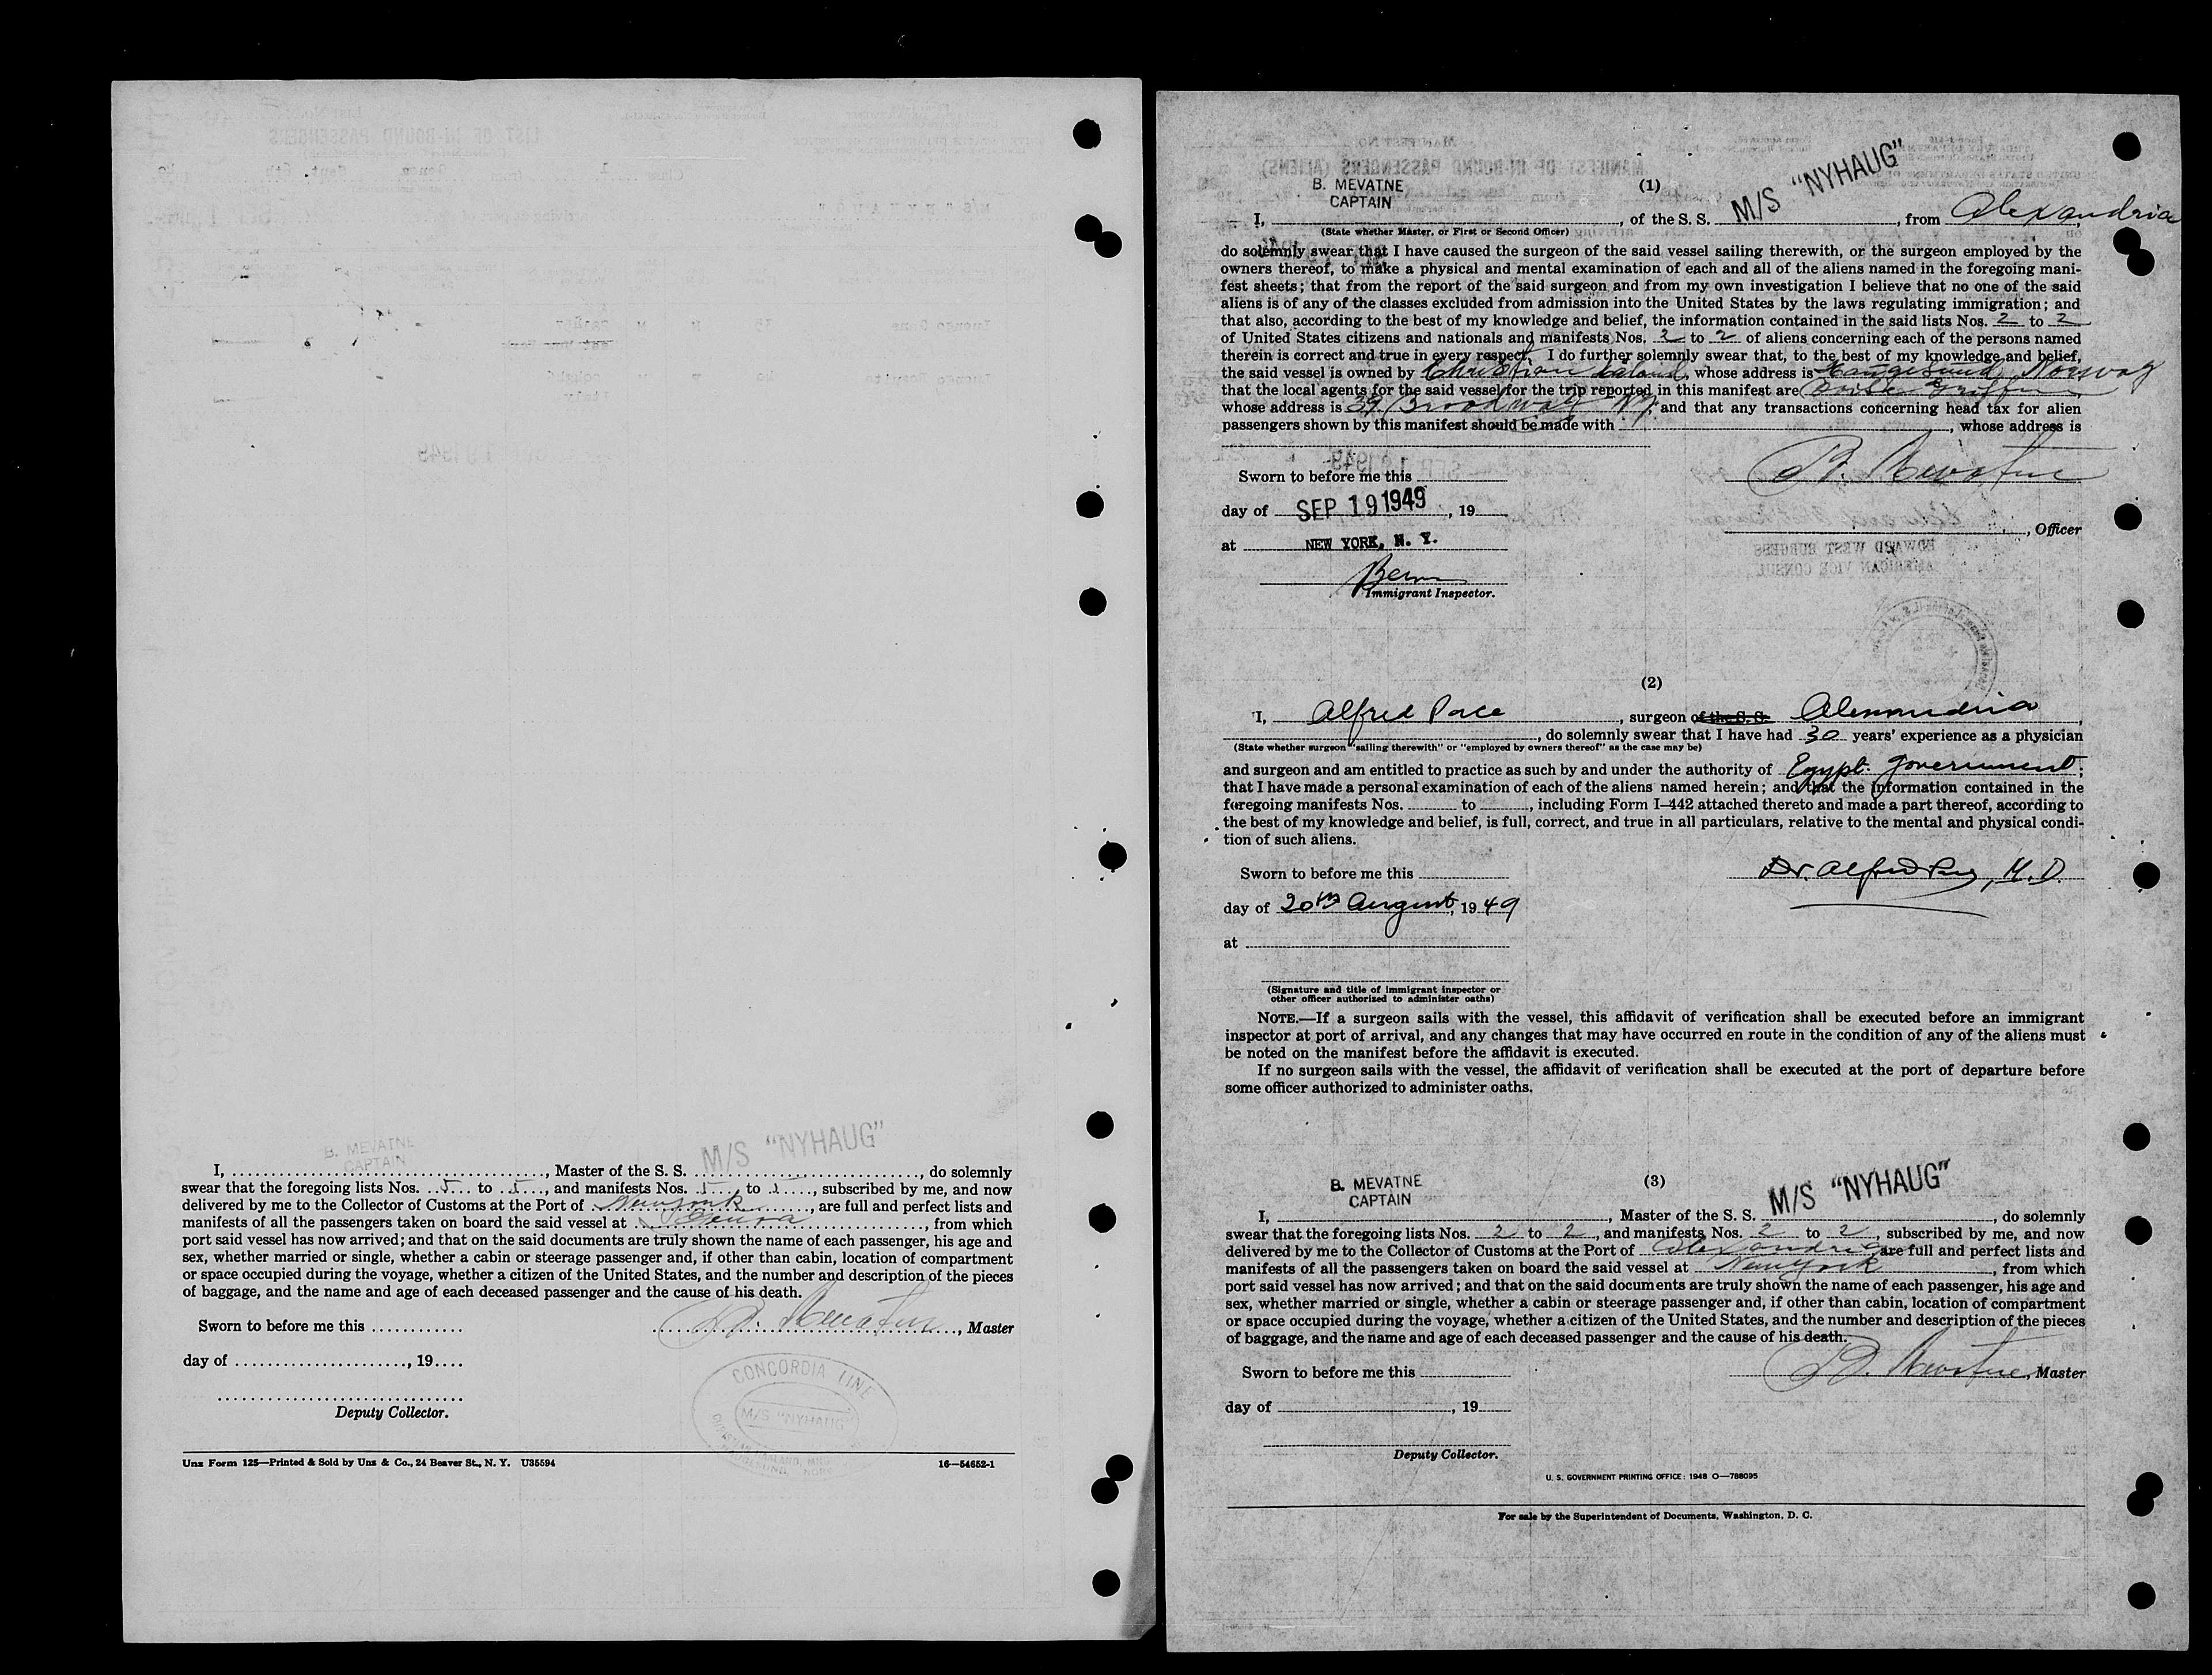 B. MEVATNE
CAPTAIN
M/S "NYHAUG"
I, , Master of the S. S. , do solemnly
swear that the foregoing lists Nos. 5 to 5, and manifests Nos. to , subscribed by me, and now
delivered by me to the Collector of Customs at the Port of New York, are full and perfect lists and
manifests of all the passengers taken on board the said vessel at Genoa, from which
port said vessel has now arrived; and that on the said documents are truly shown the name of each passenger, his age and
sex, whether married or single, whether a cabin or steerage passenger and, if other than cabin, location of compartment
or space occupied during the voyage, whether a citizen of the United States, and the number and description of the pieces
of baggage, and the name and age of each deceased passenger and the cause of his death.
Sworn to before me this
B. Mevatne, Master
day of , 19
Deputy Collector.
CONCORDIA LINE
M/S "NYHAUG"
Unz Form 125—Printed & Sold by Unz & Co., 24 Beaver St., N. Y. U35594
16—54652-1
(1)
B. MEVATNE
CAPTAIN
M/S "NYHAUG"
I, , of the S. S. , from Alexandria,
(State whether Master, or First or Second Officer)
do solemnly swear that I have caused the surgeon of the said vessel sailing therewith, or the surgeon employed by the
owners thereof, to make a physical and mental examination of each and all of the aliens named in the foregoing mani-
fest sheets; that from the report of the said surgeon and from my own investigation I believe that no one of the said
aliens is of any of the classes excluded from admission into the United States by the laws regulating immigration; and
that also, according to the best of my knowledge and belief, the information contained in the said lists Nos. 2 to 2
of United States citizens and nationals and manifests Nos. 2 to 2 of aliens concerning each of the persons named
therein is correct and true in every respect. I do further solemnly swear that, to the best of my knowledge and belief,
the said vessel is owned by Christian Haaland, whose address is Haugesund, Norway
that the local agents for the said vessel for the trip reported in this manifest are Griffin
whose address is 39. Broadway NY. and that any transactions concerning head tax for alien
passengers shown by this manifest should be made with , whose address is
Sworn to before me this
B. Mevatne
day of SEP 19 1949, 19
, Officer
at NEW YORK, N. Y.
Immigrant Inspector.
(2)
I, Alfred Pace, surgeon of the S. S. Alexandria,
, do solemnly swear that I have had 30 years' experience as a physician
(State whether surgeon "sailing therewith" or "employed by owners thereof" as the case may be)
and surgeon and am entitled to practice as such by and under the authority of Egypt. Government;
that I have made a personal examination of each of the aliens named herein; and that the information contained in the
foregoing manifests Nos. to , including Form I-442 attached thereto and made a part thereof, according to
the best of my knowledge and belief, is full, correct, and true in all particulars, relative to the mental and physical condi-
tion of such aliens.
Sworn to before me this
Dr. Alfred Pace, M.D.
day of 20th August, 1949
at
(Signature and title of immigrant inspector or
other officer authorized to administer oaths)
NOTE.—If a surgeon sails with the vessel, this affidavit of verification shall be executed before an immigrant
inspector at port of arrival, and any changes that may have occurred en route in the condition of any of the aliens must
be noted on the manifest before the affidavit is executed.
If no surgeon sails with the vessel, the affidavit of verification shall be executed at the port of departure before
some officer authorized to administer oaths.
(3)
B. MEVATNE
CAPTAIN
M/S "NYHAUG"
I, , Master of the S. S. , do solemnly
swear that the foregoing lists Nos. 2 to 2, and manifests Nos. 2 to 2, subscribed by me, and now
delivered by me to the Collector of Customs at the Port of Alexandria are full and perfect lists and
manifests of all the passengers taken on board the said vessel at New York, from which
port said vessel has now arrived; and that on the said documents are truly shown the name of each passenger, his age and
sex, whether married or single, whether a cabin or steerage passenger and, if other than cabin, location of compartment
or space occupied during the voyage, whether a citizen of the United States, and the number and description of the pieces
of baggage, and the name and age of each deceased passenger and the cause of his death.
Sworn to before me this
B. Mevatne, Master
day of , 19
Deputy Collector.
U. S. GOVERNMENT PRINTING OFFICE: 1948 O—788095
For sale by the Superintendent of Documents, Washington, D. C.